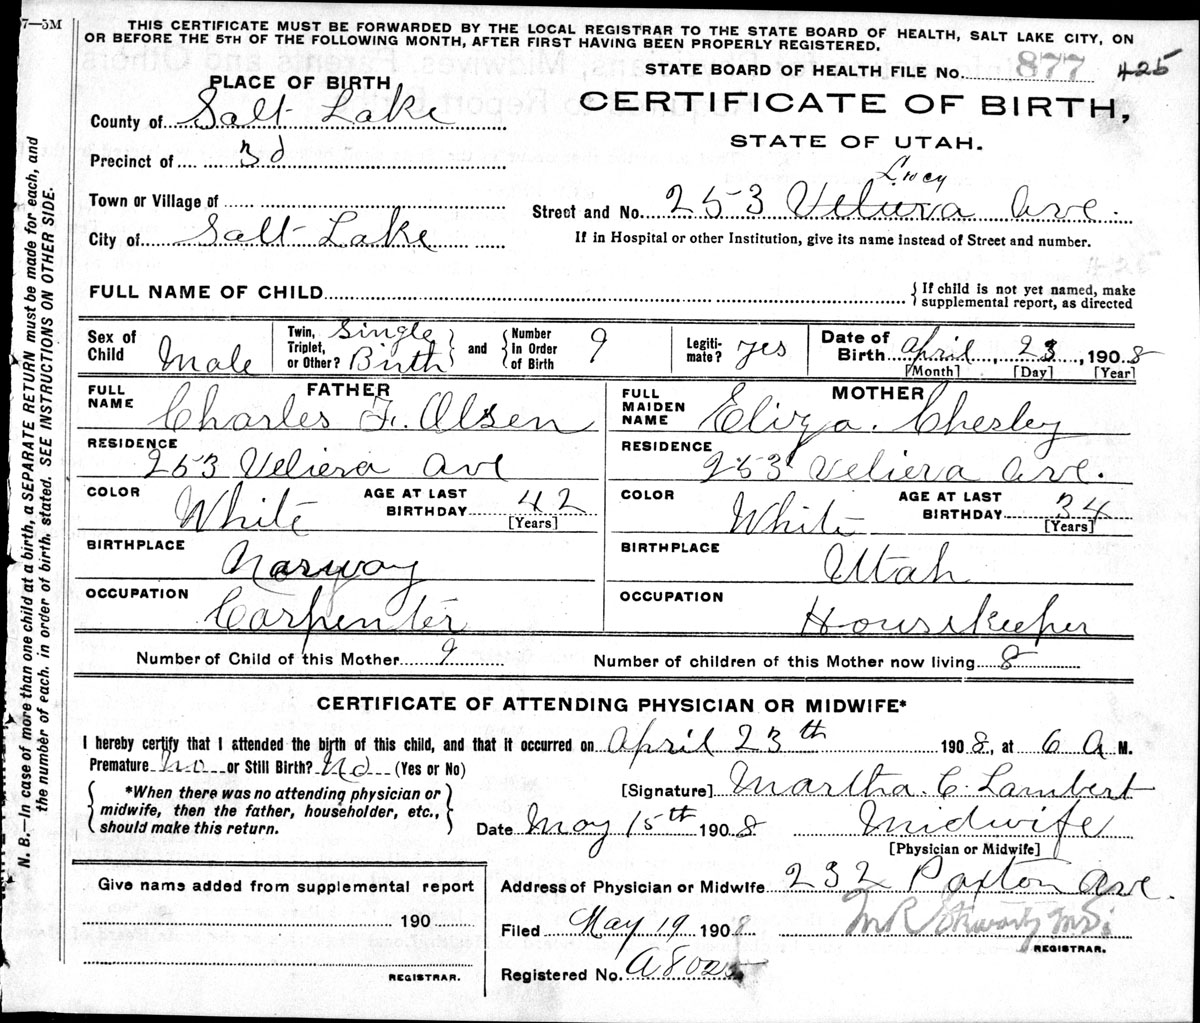 7—5M
THIS CERTIFICATE MUST BE FORWARDED BY THE LOCAL REGISTRAR TO THE STATE BOARD OF HEALTH, SALT LAKE CITY, ON
OR BEFORE THE 5TH OF THE FOLLOWING MONTH, AFTER FIRST HAVING BEEN PROPERLY REGISTERED.
STATE BOARD OF HEALTH FILE No. 877 425
PLACE OF BIRTH
CERTIFICATE OF BIRTH,
STATE OF UTAH.
County of Salt Lake
Precinct of 3d
Town or Village of
City of Salt Lake
Lucy
Street and No. 253 Veliera Ave.
If in Hospital or other Institution, give its name instead of Street and number.
425
FULL NAME OF CHILD
If child is not yet named, make
supplemental report, as directed
Sex of Child Male
Twin, Triplet, or Other? Single Birth
and Number In Order of Birth 9
Legitimate? yes
Date of Birth April, 23, 1908
[Month] [Day] [Year]
FATHER
FULL NAME Charles F. Olsen
RESIDENCE
253 Veliera Ave
COLOR White AGE AT LAST BIRTHDAY 42
[Years]
BIRTHPLACE
Norway
OCCUPATION
Carpenter
MOTHER
FULL MAIDEN NAME Eliza. Chesley
RESIDENCE
253 Veliera Ave.
COLOR White AGE AT LAST BIRTHDAY 34
[Years]
BIRTHPLACE
Utah
OCCUPATION
Housekeeper
Number of Child of this Mother 9 Number of children of this Mother now living 8
CERTIFICATE OF ATTENDING PHYSICIAN OR MIDWIFE*
I hereby certify that I attended the birth of this child, and that it occurred on April 23th 1908, at 6 A M.
Premature No or Still Birth? No (Yes or No)
*When there was no attending physician or
midwife, then the father, householder, etc.,
should make this return.
[Signature] Martha. C. Lambert
Date May 15th 1908 Midwife
[Physician or Midwife]
Give name added from supplemental report
190
REGISTRAR.
Address of Physician or Midwife 232 Paxton Ave.
Filed May 19 1908
REGISTRAR.
Registered No. A8025
N. B.—In case of more than one child at a birth, a SEPARATE RETURN must be made for each, and
the number of each, in order of birth, stated. SEE INSTRUCTIONS ON OTHER SIDE.